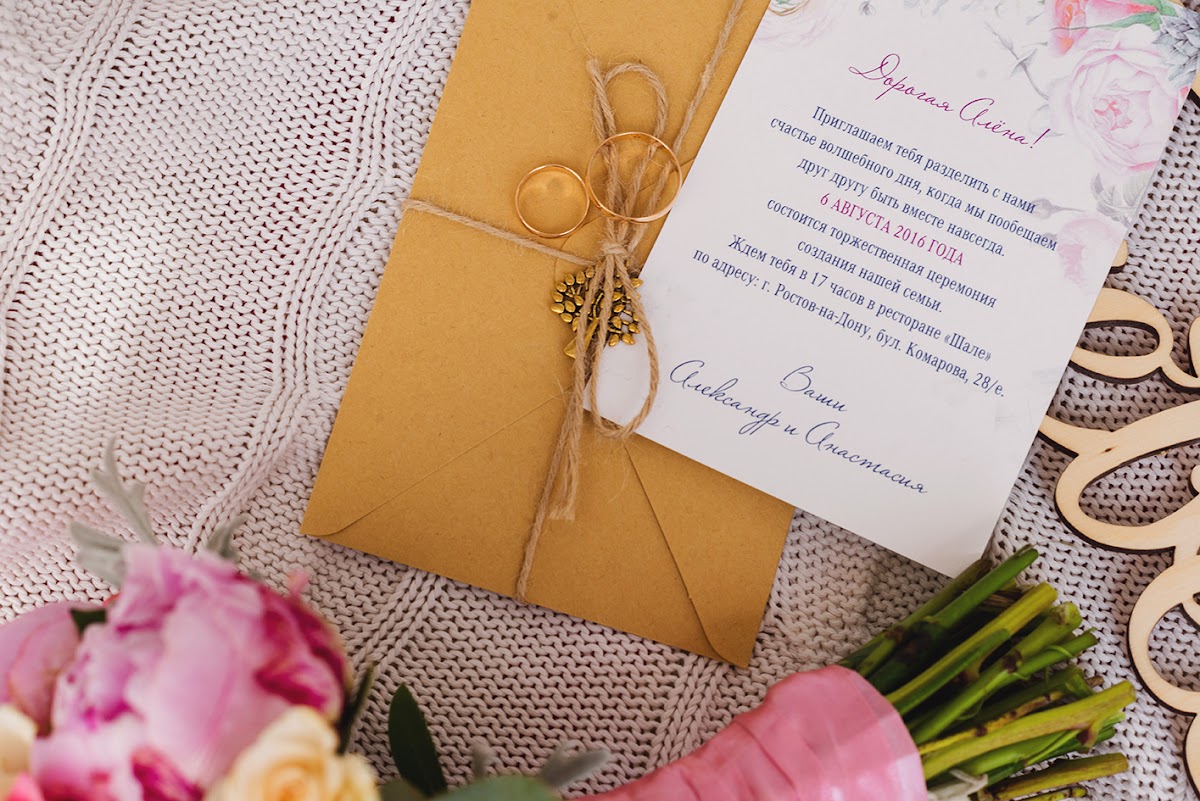 Дорогая Алёна!
Приглашаем тебя разделить с нами
счастье волшебного дня, когда мы пообещаем
друг другу быть вместе навсегда.
6 АВГУСТА 2016 ГОДА
состоится торжественная церемония
создания нашей семьи.
Ждем тебя в 17 часов в ресторане «Шале»
по адресу: г. Ростов-на-Дону, бул. Комарова, 28/е.
Ваши
Александр и Анастасия